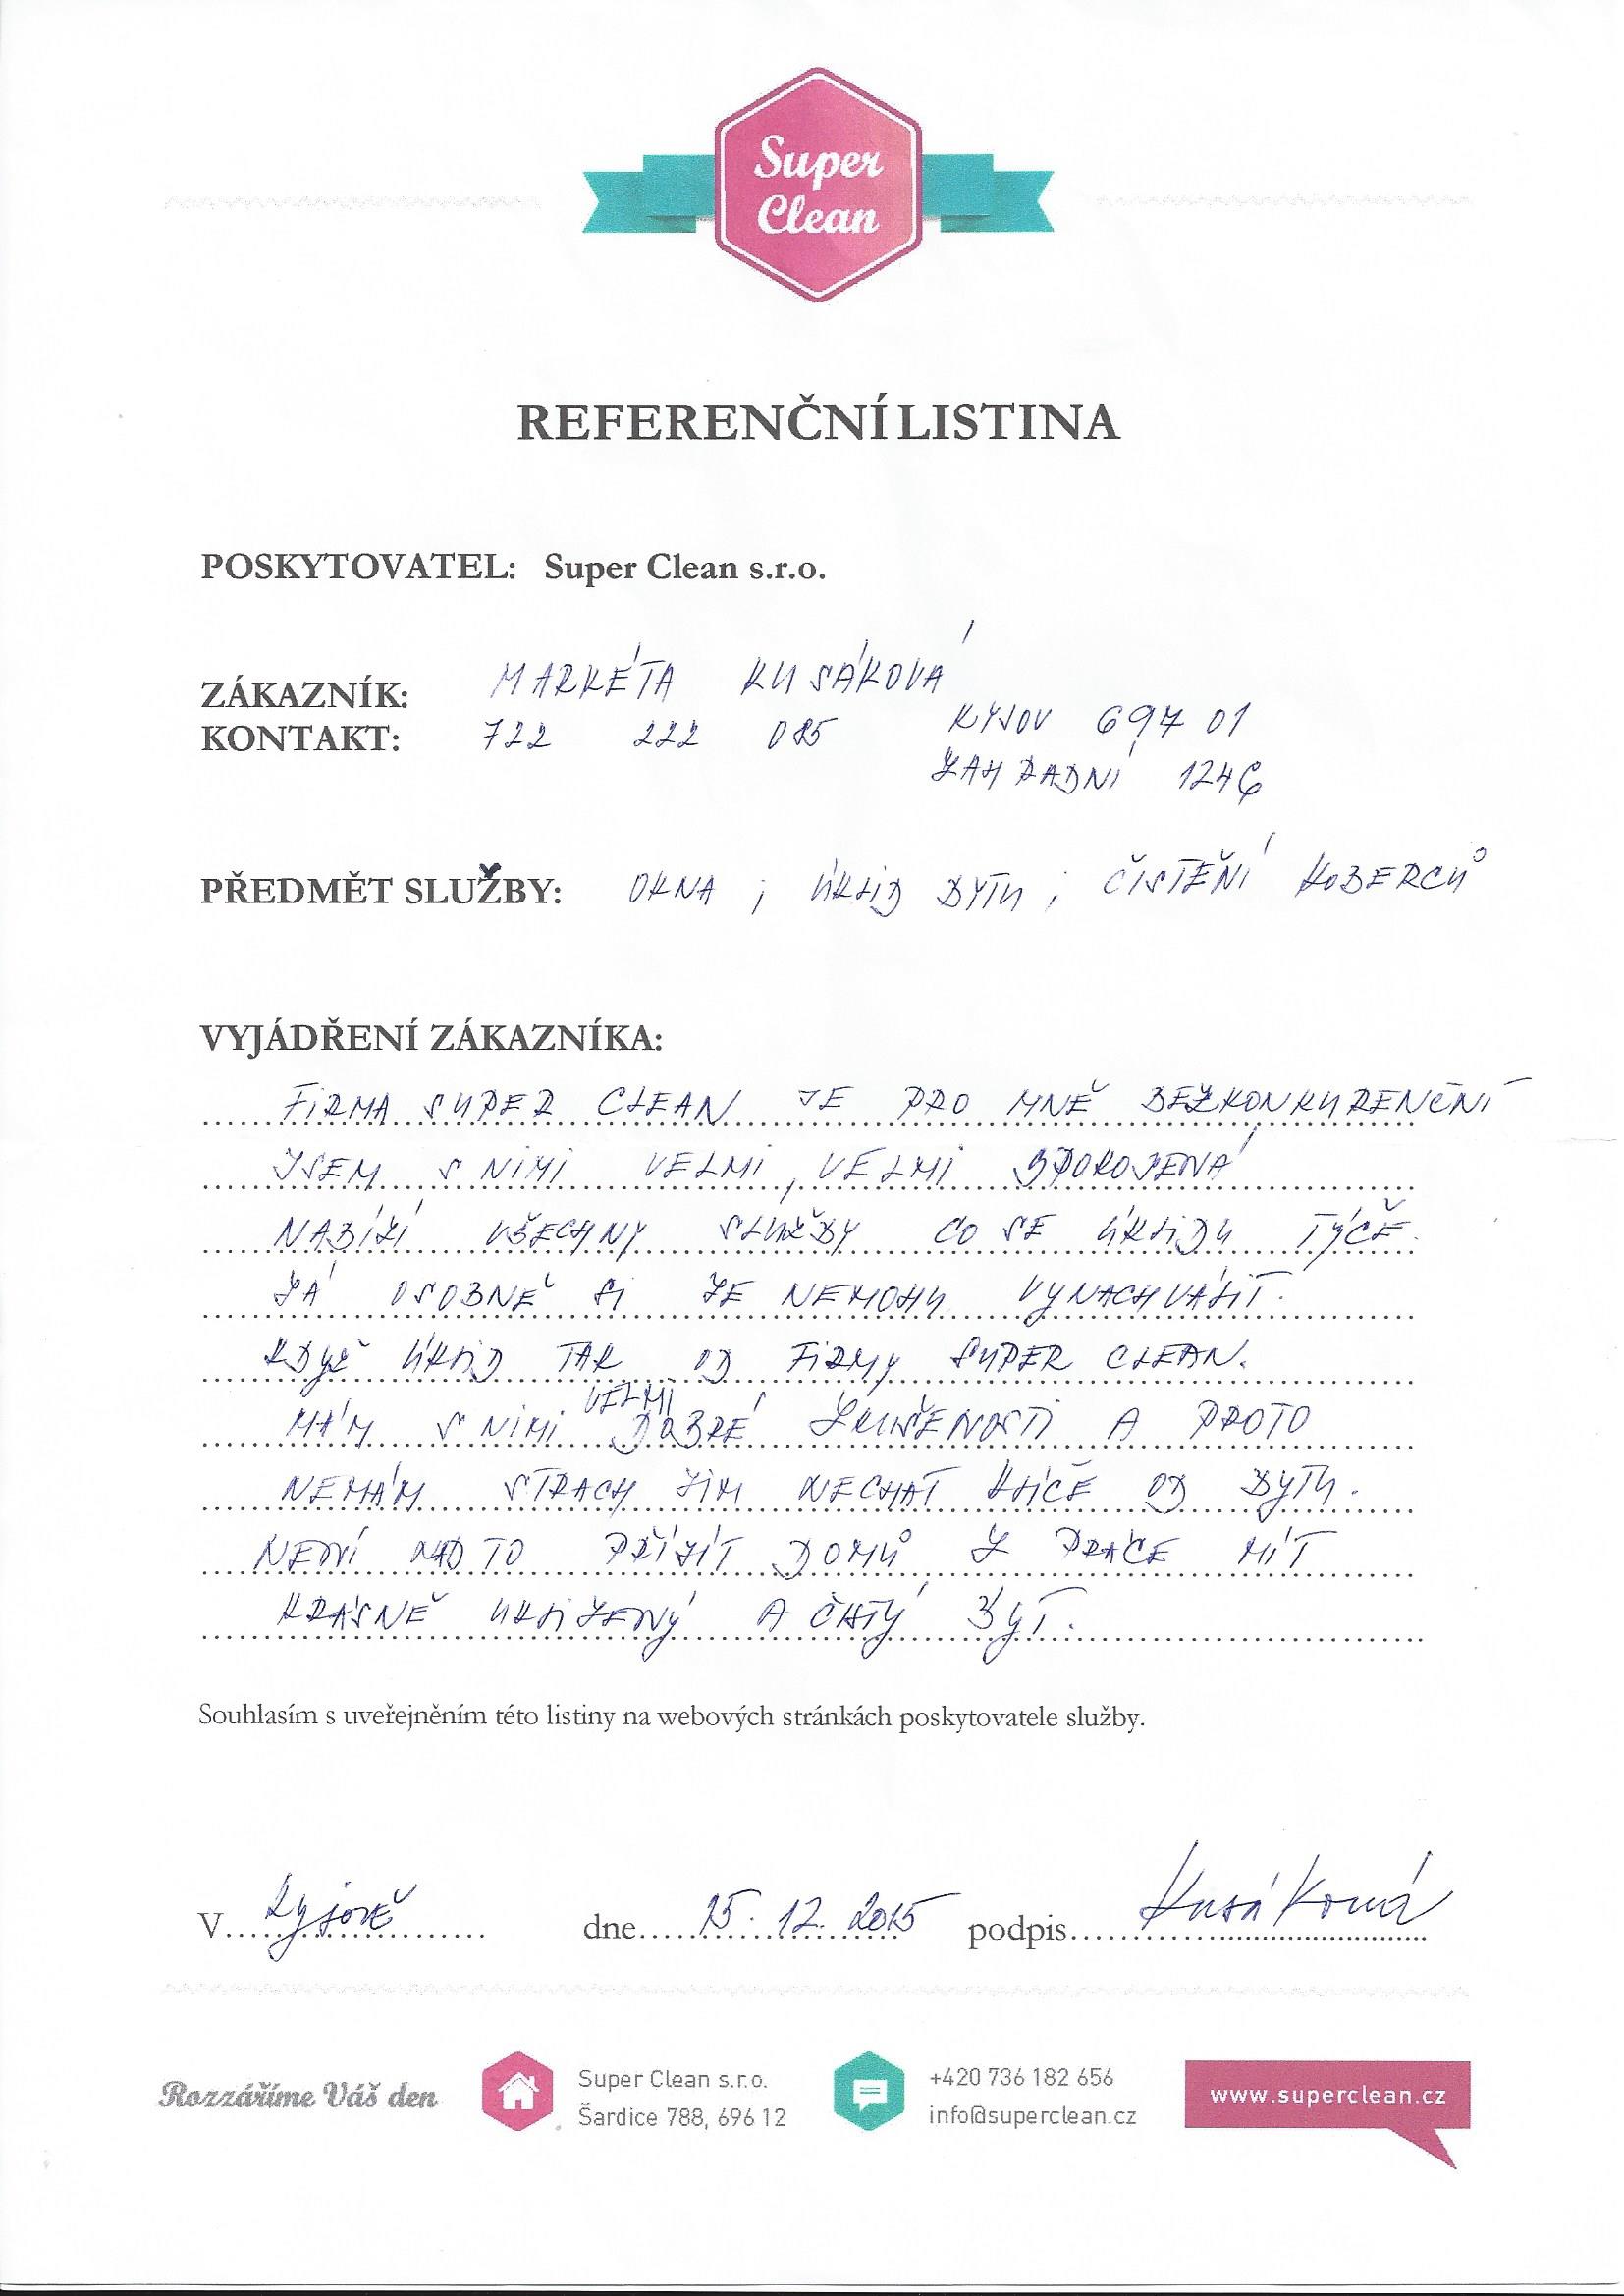 Super
Clean
REFERENČNÍ LISTINA
POSKYTOVATEL: Super Clean s.r.o.
ZÁKAZNÍK: MARKÉTA KUSÁKOVÁ
KONTAKT: 722 222 085 KYJOV 697 01
ZAHRADNÍ 1246
PŘEDMĚT SLUŽBY: OKNA ; ÚKLID BYTU ; ČISTĚNÍ KOBERCŮ
VYJÁDŘENÍ ZÁKAZNÍKA:
FIRMA SUPER CLEAN JE PRO MNĚ BEZKONKURENČNÍ
JSEM S NIMI VELMI, VELMI SPOKOJENÁ
NABÍZÍ VŠECHNY SLUŽBY CO SE ÚKLIDU TÝČE.
JÁ OSOBNĚ SI JE NEMOHU VYNACHVÁLIT.
KDYŽ ÚKLID TAK OD FIRMY SUPER CLEAN.
MÁM S NIMI VELMI DOBRÉ ZKUŠENOSTI A PROTO
NEMÁM STRACH JIM NECHAT KLÍČE OD BYTU.
NENÍ NAD TO PŘIJÍT DOMŮ Z PRÁCE MÍT
KRÁSNĚ UKLIZENÝ A ČISTÝ BYT.
Souhlasím s uveřejněním této listiny na webových stránkách poskytovatele služby.
V Kyjově dne 15. 12. 2015 podpis Kusáková
Rozzáříme Váš den
Super Clean s.r.o.
Šardice 788, 696 12
+420 736 182 656
info@superclean.cz
www.superclean.cz